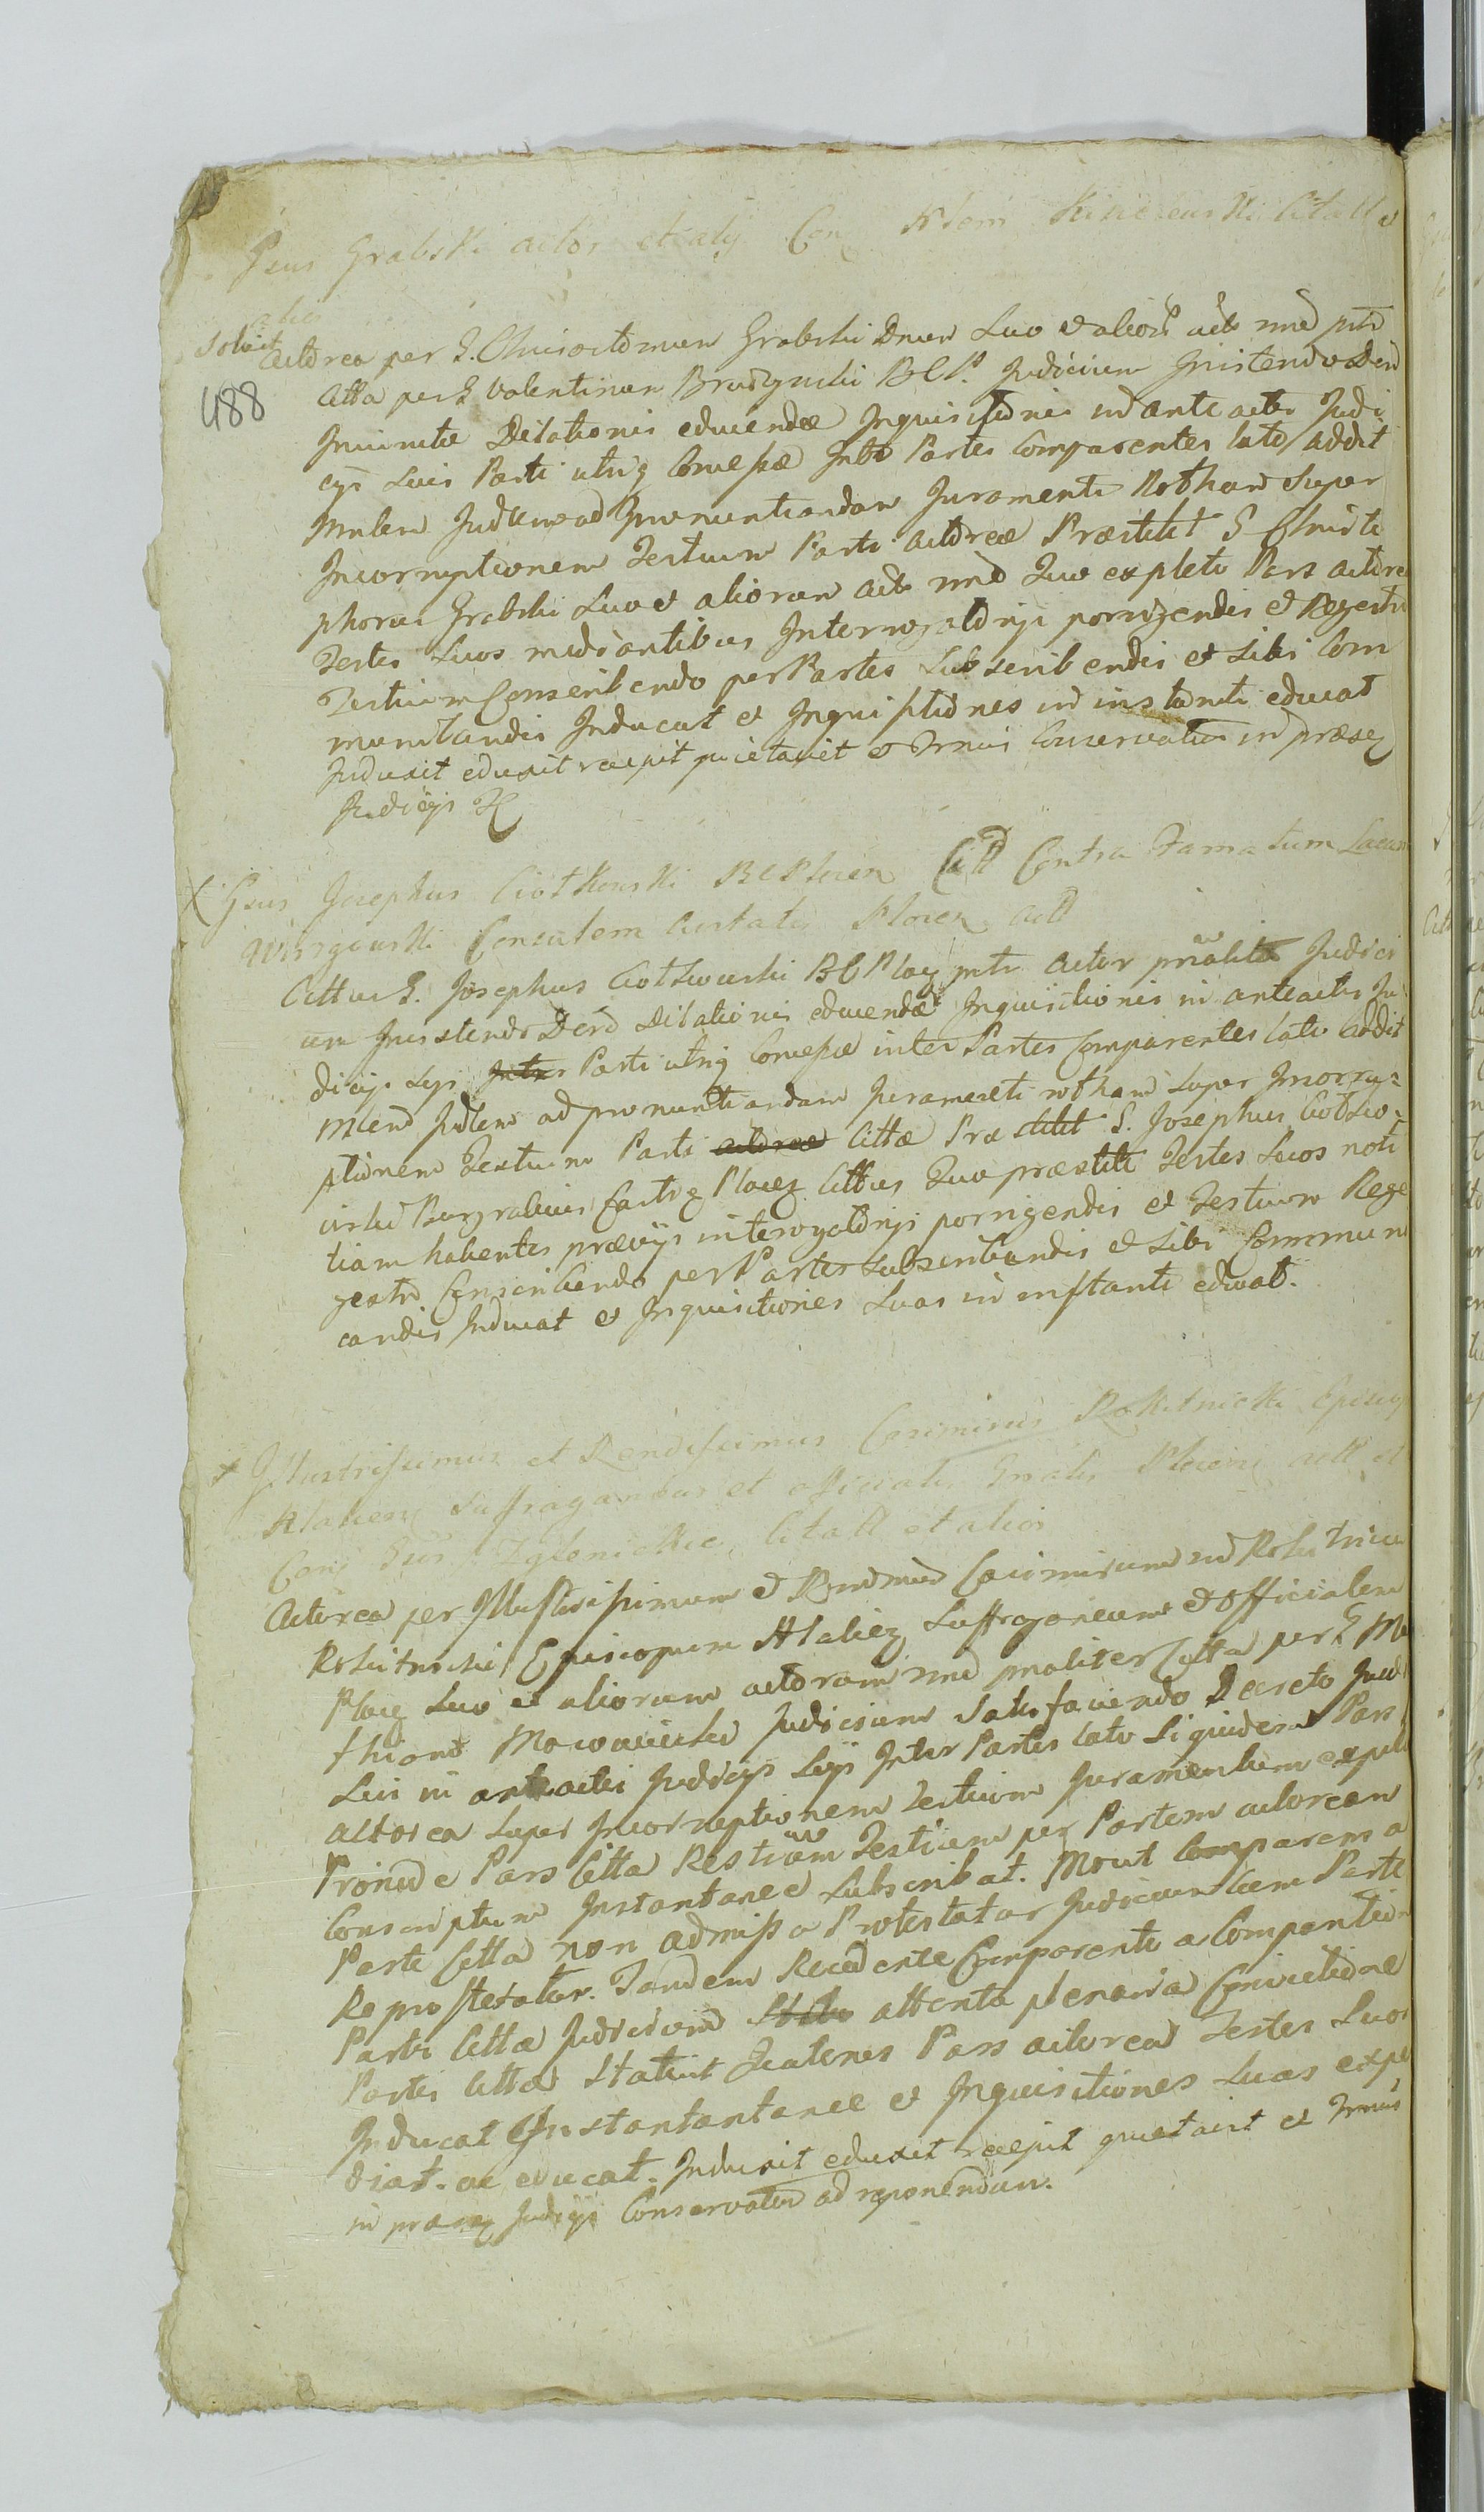 Gsus Grabski actor et alij Con Kisielewski Citatt
alios
solvit
Actorea per G. Christoforum Grabski Dnum Suo et aliorum acto nnd ptr
488
Citta per G Valentinum Brudzynski BCP. Judicium Insistendo Dcrd
Intuitu Dilationis educendæ Inquisitionis in ante actis Judi
cijs suis Parti utriq Concessæ Inter Partes Comparentes lato addit
Mnlem Judlem ad Pronuntiandam Juramenti Rotham Super
Incorruptionem Testium Parti actoreæ Præstitit G Christo
phorus Grabski Suo et aliorum acto nnd Quo expleto Pars actorea
Testes Suos mediantibus Interrogatorijs porrigendis et Regestro
Testium Conscribendo per Partes Subscribendis et Sibi Com
municandis Inducat et Inquisitiones in instanti educat
Induxit eduxit recepit quietavit et Trnus Conservatur in præsq
Judicijs H
X Gsus Josephus Ciotkowski BCPlocen Citt Contra Famatum Lucam
Wirzgowski Consulem Civitatis Plocen Actt
Cittus G. Josephus Ciotkowski BCPlocq ptr Actor prialit Judici
um Insistendo Dcrd Dilationis educendæ Inquisitionis in anteactis Ju
dicijs Sijs Inter Parti utriq Concessæ inter Partes Comparentes lato addit
Mlend Judlem ad pronuntiandam Juramenti rotham Super Incorru=
ptionem Testium Parti actoreæ Cittæ Præstitit G. Josephus Ciotko=
wski Burgrabius Castrq Plocq Cittus Quo præstito Testes Suos noti
tiam habentes prævijs interogatorijs porrigendis et Testium Rege
gestro Conscribendo per Partes Subscribendis et Sibi Communi
candis Inducat et Inquisitiones Suas in instanti educat.
X Illustrissimus et Rendissimus Casimirus Rokitnicki Episcop
Halicen Suffraganeus et officialis Gnalis Plocen actt et
Con Gsus Zglenickie Citatt et alios
Actorea per Illustrissimum et Rndmum Casimirum in Rokitnica
Rokitnicki Episcopum Halicq Suffraganeum et Officialem
Plocq Suo et aliorum actorum nnd prialiter Citta per G Ma
thiam Mocarski Judicium Satisfaciendo Decreto Judi
Suis in anteactis Judicijs Sijs Inter Partes lato Siquidem Pars
actorea Super Incorruptionem Testium Juramentum explevit
Proinde Pars Citta Restrum Testium per Partem actoream
Conscriptum Instantanee Subscribat. Mout Comparens a
Parte Citta non admissa Protestatur Judicium Cum Parte
Reprotestatur. Tandem Recedente Comparente a Comparitione
Partis Cittæ Judicium Statu attenta plenaria Convictione
Partis Cittæ Statuit Quatenus Pars actorea Testes Suos
Inducat Instantantanee et Inquisitiones Suas expe
diat. ac educat. Induxit eduxit recepit quietavit et Trnus
in præsq Judijs Conservatur ad reponendum.